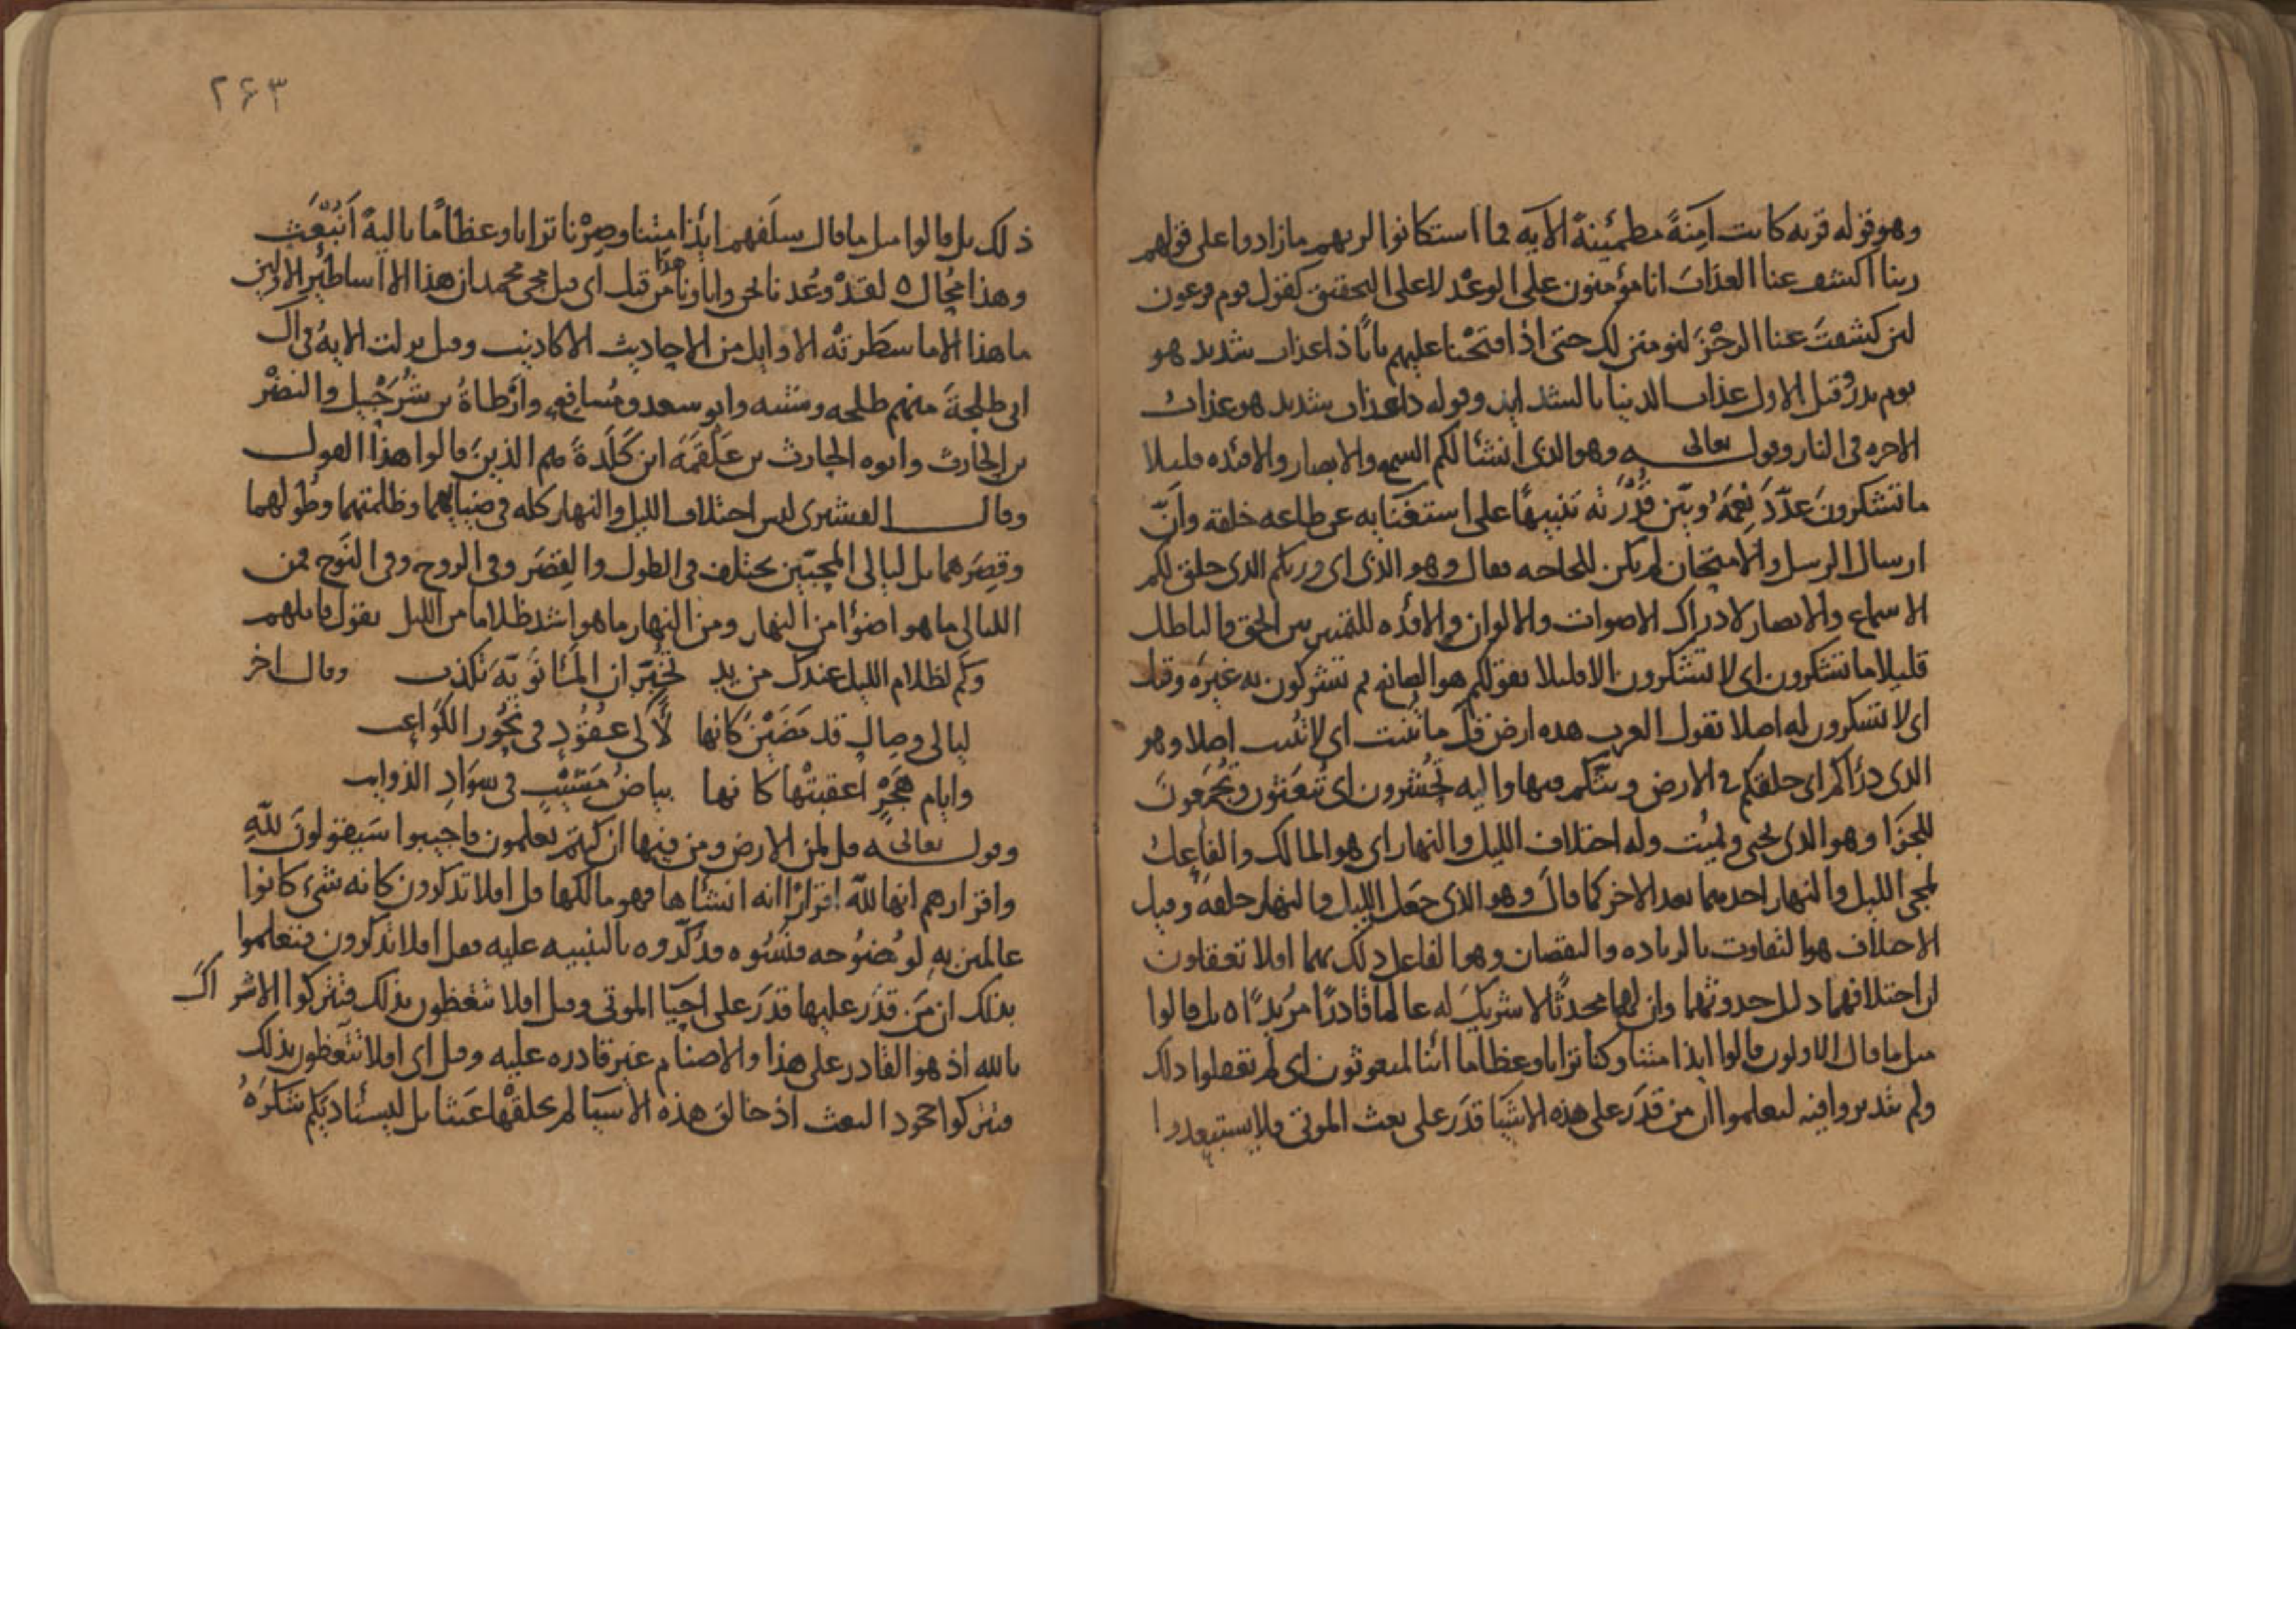 وهو قوله قرية كانت آمِنَةً مطمئِنةً الآية فما استكانوا لربهم ما زادوا على قولهم
ربنا اكشف عنا العذاب انا مؤمنون على الوعْد لا على التحقيق كقول قوم فرعون
لئن كشفتَ عنا الرجْزَ لنومنن لك حتى اذا فتحْنا عليهم بابًا ذا عذاب شديد هو
يوم بدر وقيل الاول عذاب الدنيا بالشدايد وقوله ذا عذاب شديد هو عذاب
الاخرة في النار وقول تعالى وهو الذي انشأ لكم السمع والابصار والافئدة قليلا
ما تشكرونَ عدّدَ نِعَمَهُ وبيّن قُدْرَته تنبيهًا على استغنايه عن طاعة خلقه وانّ
ارسال الرسل والامتحان لم يكن للحاجة فقال وهو الذي اي وربكم الذي خلق لكم
الاسماع والابصار لادراك الاصوات والالوان والافئدة للتمييز بين الحق والباطل
قليلا ما تشكرون اي لا تشكرون الا قليلا بقولكم هو الصانع ثم تشركون به غيرَه وقيل
اي لا تشكرون له اصلا تقول العرب هذه ارض قلَّ ما تُنبت اي لا تُنبت اصلا وهو
الذي ذرأكم اي خلقكم في الارض وبثّكم فيها واليه تُحْشرون اي تُبعَثون وتُجْمَعونَ
للجزا وهو الذي يحيي ويُميت وله اختلاف الليل والنهار اي هو المالك والفاعِل
لمجي الليل والنهار احدهما بعد الاخر كما قالَ وهو الذي جَعل الليل والنهار خلفةً وقيل
الاختلاف هو التفاوت بالزيادة والنقصان وهو الفاعل ذلك بهما افلا تعقلون
ان اختلافهما دليل حدوثهما وان لهما محدثًا لا شريكَ له عالما قادرًا مريدًا ٥ بل قالوا
مثل ما قال الاولون قالوا ايذا متنا وكنا ترابا وعظاما ائنا لمبعوثون اي لم يعقلوا ذلك
ولم يتدبروا فيه ليعلموا ان من قدَرَ على هذه الاشيَا قدَرَ على بعث الموتى فلا يستبعدوا
٢٦٣
ذلك بل قالوا مثل ما قال سلَفهم ايُذا مِتْنا وصِرْنا ترابا وعظامًا باليةً اَنُبْعَث
وهذا مُحال ٥ لقدْ وُعْدنا نحن واباونا هذا من قبل اي قبل مجي محمد ان هذا الا اساطير الاولين
ما هذا الا ما سطَرتْه الاوايل من الاحاديث الاكاذيب وقيل نزلت الايةُ في آل
ابي طلحةَ منهم طلحه وشيبه وابو سعد ومُسافِع وارْطاةُ بن شُرَحْبيل والنضْر
بن الحارث وابوه الحارث بن علقمَة ابن كَلَدةَ هم الذينَ قالوا هذا القول
وقال القشيري ليس اختلاف الليل والنهار كله في ضيايهما وظلمتهما وطولهما
وقِصَرهما بل ليالي المحبّين يختلف في الطول والقِصَر وفي الروح وفي النَوح فمن
الليالي ما هو اضوَأ من النهار ومن النهار ما هو اشد ظلاما من الليل يقول قايلهم
وكم لظلام الليل عندك من يد تُخَبّر ان المَانَويّة تكذب وقال اخر
ليالي وصال قد مَضَيْن كانها لآلي عقودٍ في نُحُور الكَواعِب
وايام هَجْرٍ اعقبتْها كانها بياضُ مَشيْبٍ في سوَادِ الذوايب
وقول تعالى قل لمن الارض ومن فيها ان كنتم تعلمون فاجيبوا سَيقولونَ للّهِ
واقرارهم انها للّه اقرارًا انه انشأها فهو مالكها قل افلا تذكرون كانه شيء كانوا
عالمين به لوُضُوحه فنسُوه فذُكّروه بالتنبيه عليه فقل افلا تذكرون فتعلموا
بذلك ان مَن قدَر عليها قدَرَ على احيَا الموتى وقيل افلا تتعظون بذلك فتتركوا الاشراك
بالله اذ هو القادر على هذا والاصنام غير قادره عليه وقيل اي افلا تتعظون بذلك
فتتركوا جحود البعث اذ خالق هذه الاشيا لم يخلقْها عَبثا بل ليستاديكم شكرَهُ